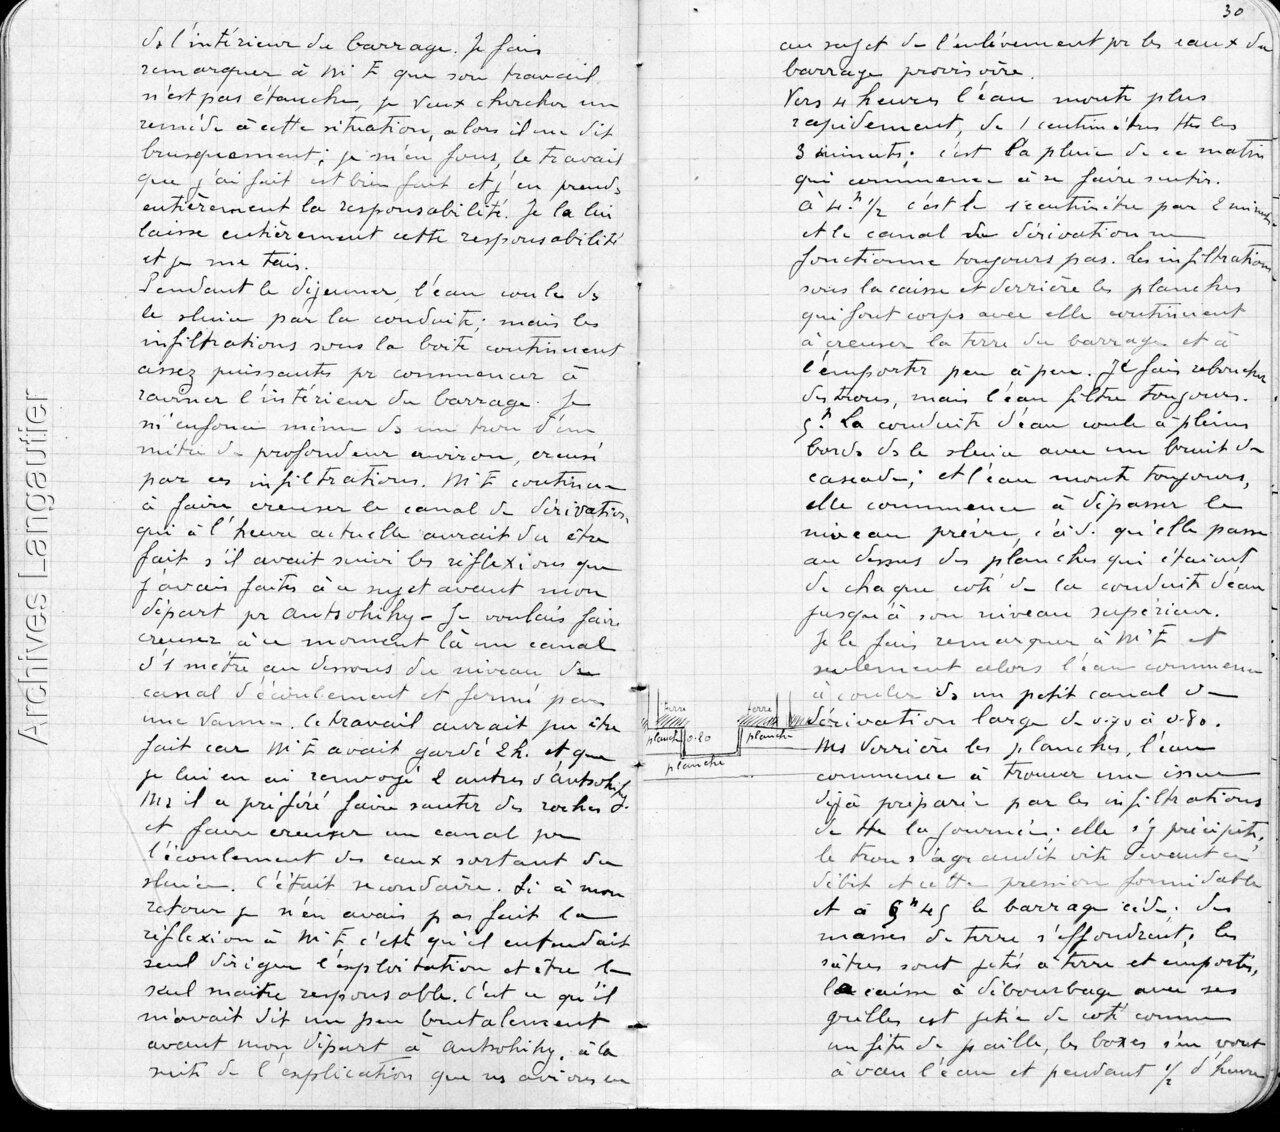 de l'intérieur du barrage. Je fais
remarquer à Mr E que son travail
n'est pas étanche, je veux chercher un
remède à cette situation, alors il me dit
brusquement; je m'en fous, le travail
que j'ai fait est bien fait et j'en prends
entièrement la responsabilité. Je la lui
laisse entièrement cette responsabilité
et je me tais.
Pendant le déjeuner, l'eau coule ds
le sluice par la conduite; mais les
infiltrations sous la boîte continuent
assez puissantes pr commencer à
raviner l'intérieur du barrage. Je
m'enfonce même ds un trou d'un
mètre de profondeur environ, creusé
par ces infiltrations. Mr E continue
à faire creuser le canal de dérivation,
qui à l'heure actuelle aurait du être
fait s'il avait suivi les réflexions que
j'avais faites à ce sujet avant mon
départ pr Antsohihy - Je voulais faire
creuser à ce moment là un canal
d'1 mètre au dessous du niveau du
canal d'écoulement et fermé par
une vanne. Ce travail aurait pu être
fait car Mr E avait gardé 2 h. et que
je lui en ai renvoyé 2 autres d'Antsohihy.
Ms il a préféré faire sauter des roches
et faire creuser un canal pr
l'écoulement des eaux sortant du
sluice. C'était secondaire. Si à mon
retour je n'en avais pas fait la
réflexion à Mr E c'est qu'il entendait
seul diriger l'exploitation et être le
seul maître responsable. C'est ce qu'il
m'avait dit un peu brutalement
avant mon départ à Antsohihy, à la
suite de l'explication que ns avions eu
30
au sujet de l'enlèvement pr les eaux du
barrage provisoire.
Vers 4 heures l'eau monte plus
rapidement, de 1 centimètres ttes les
3 minutes; c'est la pluie de ce matin
qui commence à se faire sentir.
à 4 h 1/2 c'est le 1 centimètre par 2 minutes
et le canal de dérivation ne
fonctionne toujours pas. Les infiltrations
sous la caisse et derrière les planches
qui font corps avec elle continuent
à creuser la terre du barrage et à
l'emporter peu à peu. Je fais reboucher
des trous, mais l'eau filtre toujours.
5 h. La conduite d'eau coule à pleins
bords ds le sluice avec un bruit de
cascade; et l'eau monte toujours,
elle commence à dépasser le
niveau prévu, c'à d. qu'elle passe
au dessus des planches qui étaient
de chaque coté de la conduite d'eau
jusqu'à son niveau supérieur.
Je le fais remarquer à Mr E et
seulement alors l'eau commence
à couler ds un petit canal de
dérivation large de 0.70 à 0.80.
Ms derrière les planches, l'eau
commence à trouver une issue
déjà préparée par les infiltrations
de tte la journée; elle s'y précipite,
le trou s'agrandit vite devant ce
débit et cette pression formidable
et à 5 h 45 le barrage cède; des
masses de terre s'effondrent; les
sont jetés à terre et emportés,
la caisse à débourbage avec ses
grilles est jetée de coté comme
un fétu de paille, les boxes s'en vont
à vau l'eau et pendant 1/2 d'heure
terre
terre
planche
0.80
planche
planche
Archives Langautier